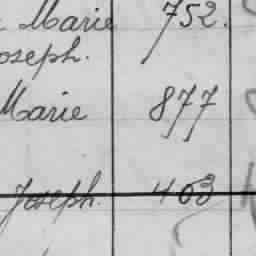 Marie 752.
oseph.
Marie 877
Joseph. 403